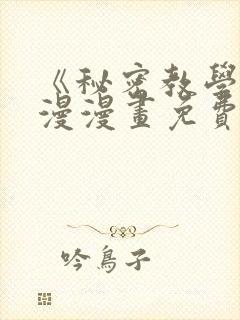 《秘密教學
漫漫畫免費
吟鳥子